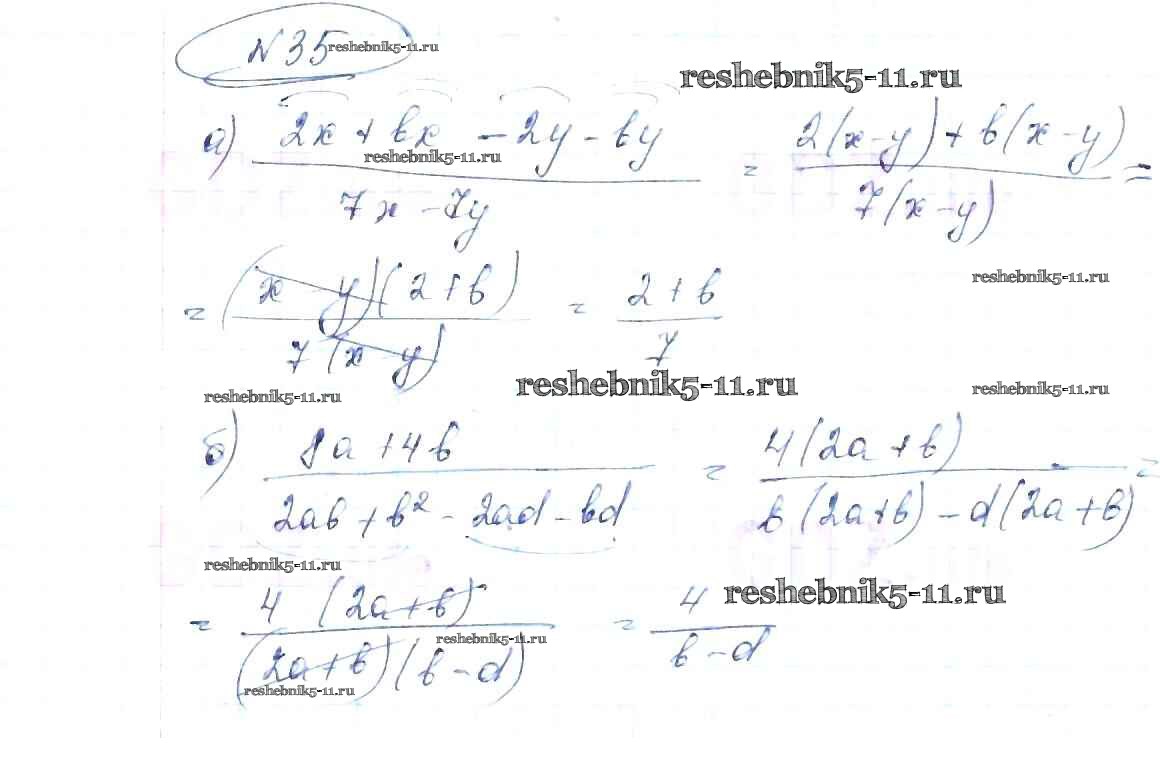 №35 reshebnik5-11.ru
reshebnik5-11.ru
а) (2x + bx - 2y - by) / (7x - 7y) = (2(x-y) + b(x-y)) / (7(x-y)) =
reshebnik5-11.ru
reshebnik5-11.ru
= ((x-y)(2+b)) / (7(x-y)) = (2+b) / 7
reshebnik5-11.ru
reshebnik5-11.ru
reshebnik5-11.ru
б) (8a + 4b) / (2ab + b² - 2ad - bd) = (4(2a+b)) / (b(2a+b) - d(2a+b)) =
reshebnik5-11.ru
reshebnik5-11.ru
= (4 (2a+b)) / ((2a+b)(b-d)) = 4 / (b-d)
reshebnik5-11.ru
reshebnik5-11.ru